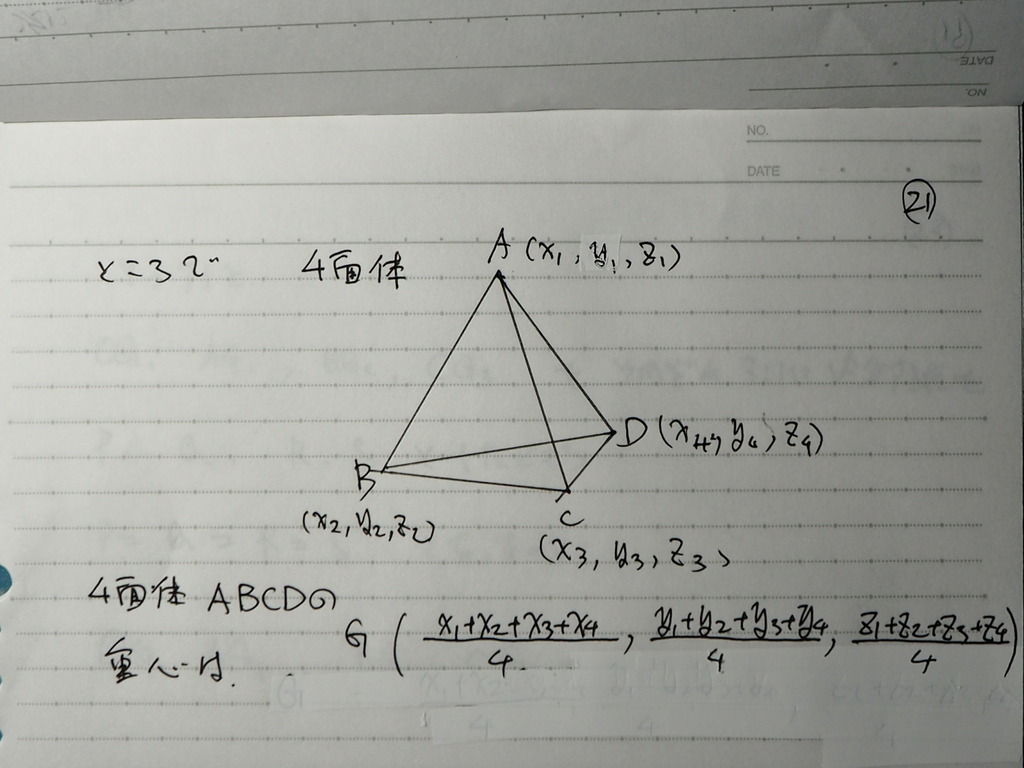 NO.
DATE
NO.
DATE
㉑
ところで 4面体
A (x₁, y₁, z₁)
D (x₄, y₄, z₄)
B
(x₂, y₂, z₂)
C
(x₃, y₃, z₃)
4面体 ABCDの
重心は.
G ( (x₁+x₂+x₃+x₄)/4, (y₁+y₂+y₃+y₄)/4, (z₁+z₂+z₃+z₄)/4 )